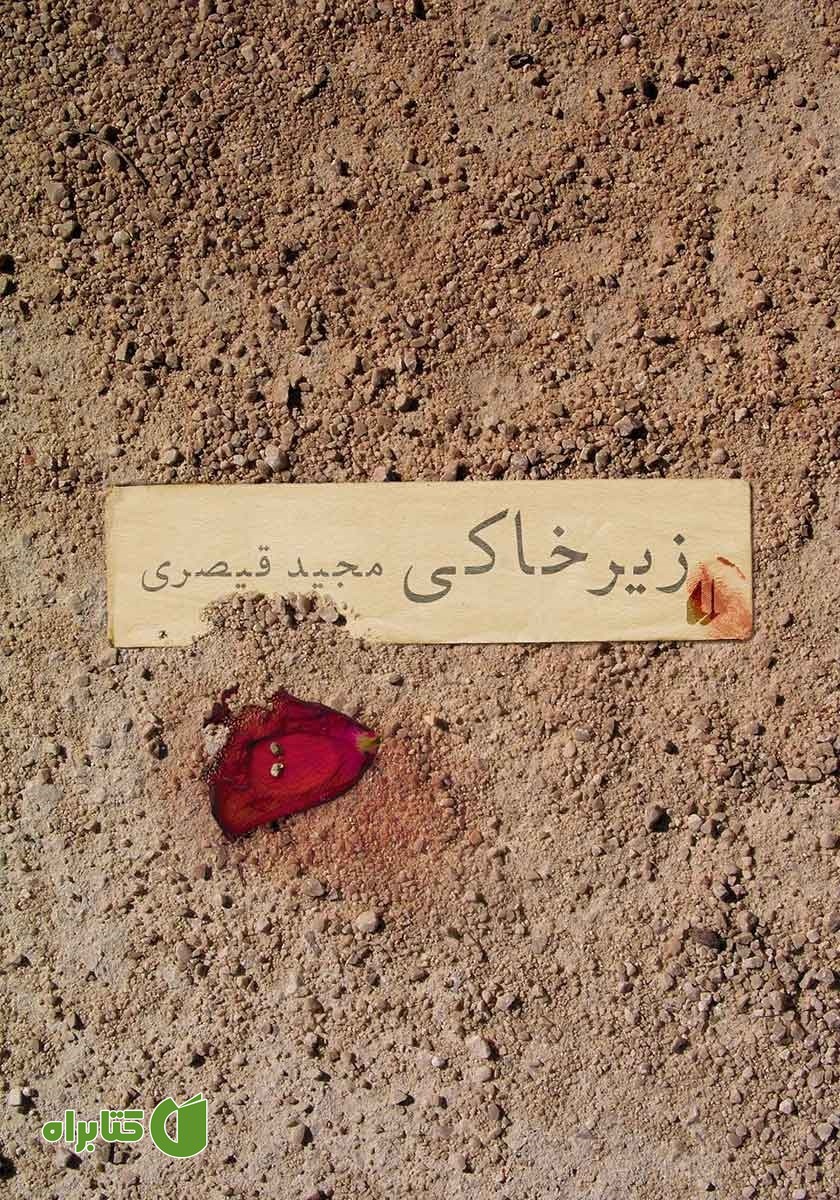 زیرخاکی مجید قیصری
کتابراه